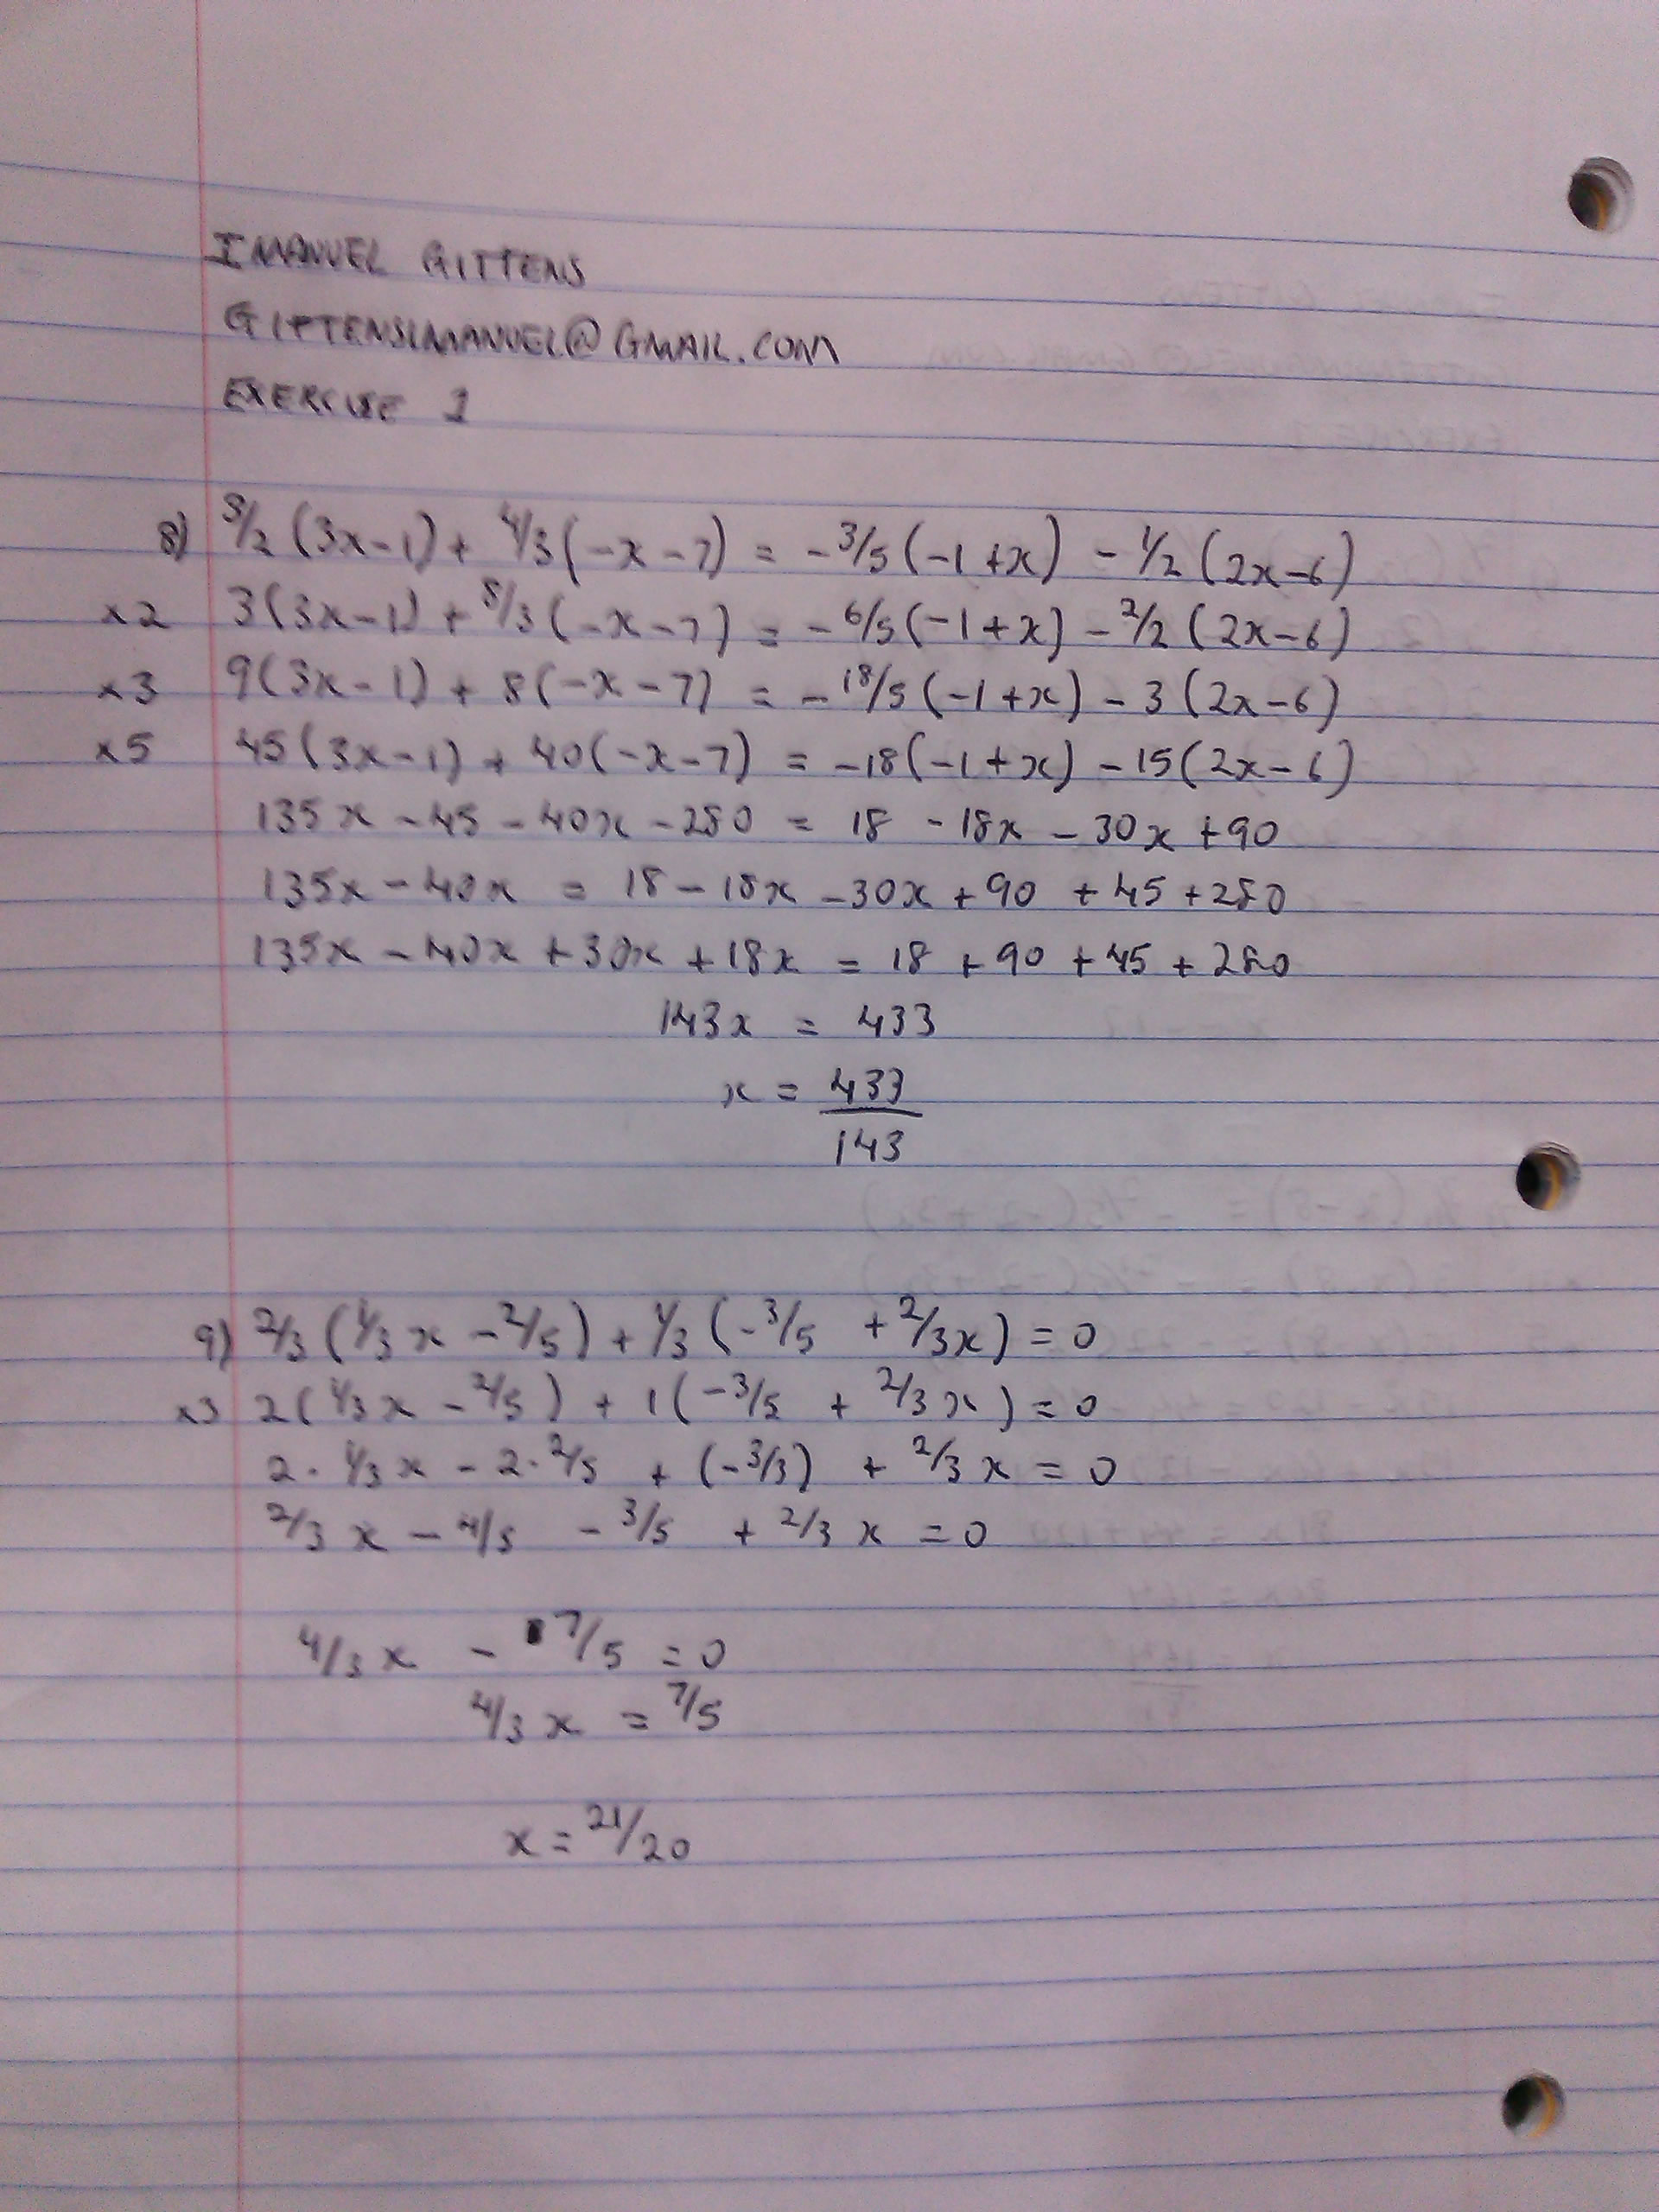 IMANUEL GITTENS
GITTENSIMANUEL@GMAIL.COM
EXERCISE 1
8) 3/2 (3x-1) + 4/3 (-x-7) = -3/5 (-1+x) - 1/2 (2x-6)
x2 3(3x-1) + 8/3 (-x-7) = -6/5 (-1+x) - 2/2 (2x-6)
x3 9(3x-1) + 8(-x-7) = -18/5 (-1+x) - 3(2x-6)
x5 45(3x-1) + 40(-x-7) = -18(-1+x) - 15(2x-6)
135x - 45 - 40x - 280 = 18 - 18x - 30x + 90
135x - 40x = 18 - 18x - 30x + 90 + 45 + 280
135x - 40x + 30x + 18x = 18 + 90 + 45 + 280
143x = 433
x = 433
143
9) 2/3 (1/3 x - 2/5) + 1/3 (-3/5 + 2/3 x) = 0
x3 2(1/3 x - 2/5) + 1(-3/5 + 2/3 x) = 0
2 · 1/3 x - 2 · 2/5 + (-3/5) + 2/3 x = 0
2/3 x - 4/5 - 3/5 + 2/3 x = 0
4/3 x - 7/5 = 0
4/3 x = 7/5
x = 21/20